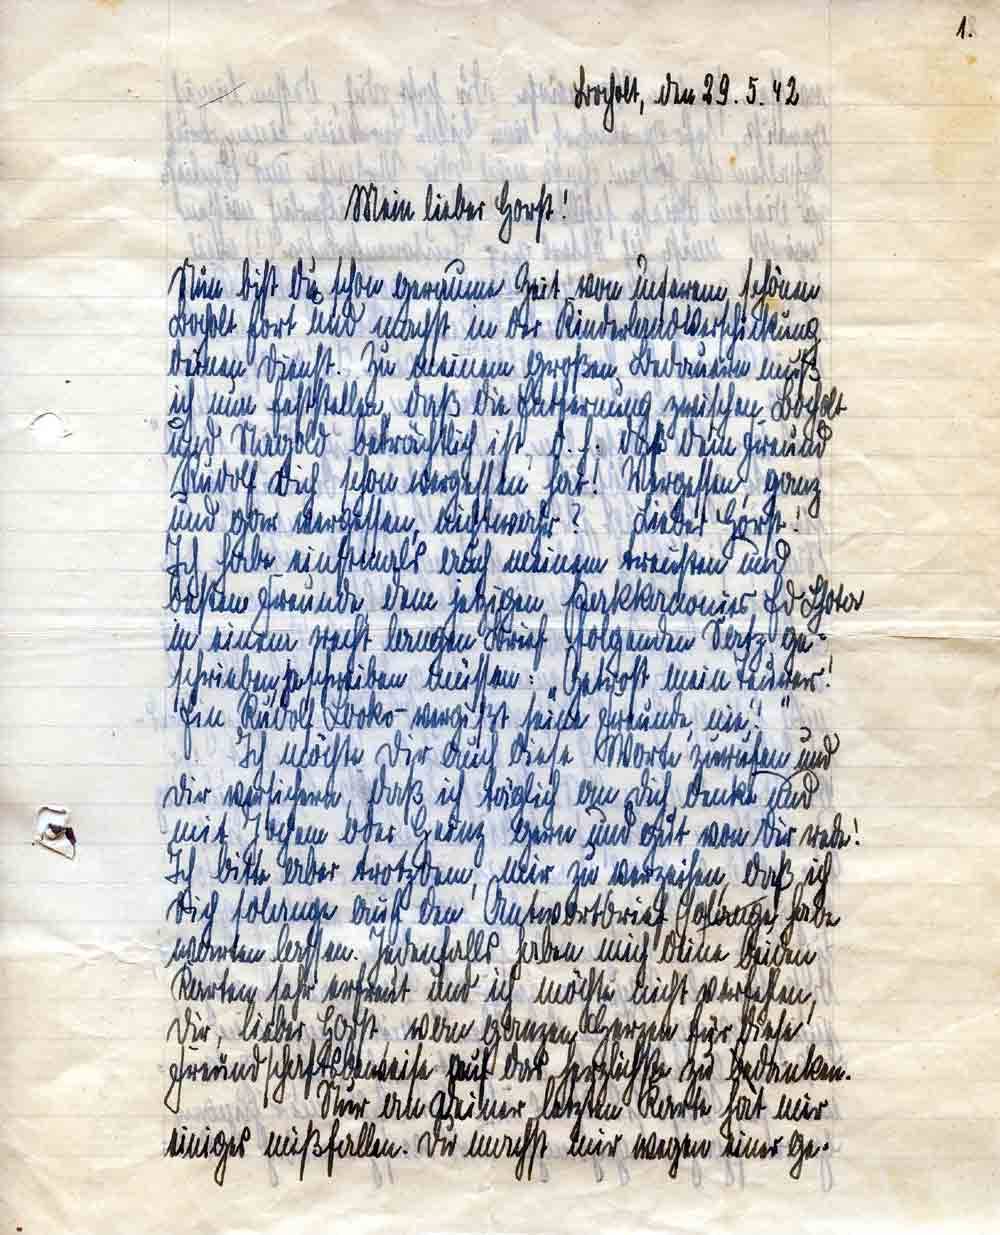 1.
Bocholt, den 29. 5. 42
Mein lieber Horst!
Nun bist Du schon geraume Zeit von unserem schönen
Bocholt fort und machst in der Kinderlandverschickung
deinen Dienst. Zu meinem großen Bedauern muß
ich nun feststellen, daß die Entfernung zwischen Bocholt
und Nagold beträchtlich ist, d. h. daß dein Freund
Rudolf Dich schon vergessen hat! Vergessen, ganz
und gar vergessen, nicht wahr? Lieber Horst!
Ich habe einstmals auch meinem treusten und
besten Freunde, dem jetzigen
in einem recht langen Brief folgenden Satz ge-
schrieben, schreiben müssen: „Getrost mein Teurer!
Ein Rudolf vergißt seine Freunde nie!"
Ich möchte Dir auch diese Worte zurufen und
Dir versichern, daß ich täglich an Dich denke und
mit Jochem oder Heinz gern und gut von Dir rede!
Ich bitte aber trotzdem, mir zu verzeihen, daß ich
Dich solange auf den Antwortbrief solange habe
warten lassen. Jedenfalls haben mich Deine beiden
Karten sehr erfreut und ich möchte nicht verfehlen,
Dir, lieber Horst von ganzem Herzen für diese
Freundschaftsbeweise auf das herzlichste zu bedanken.
Nur an Deiner letzten Karte hat mir
einiges mißfallen. Du machst mir wegen einer ge-